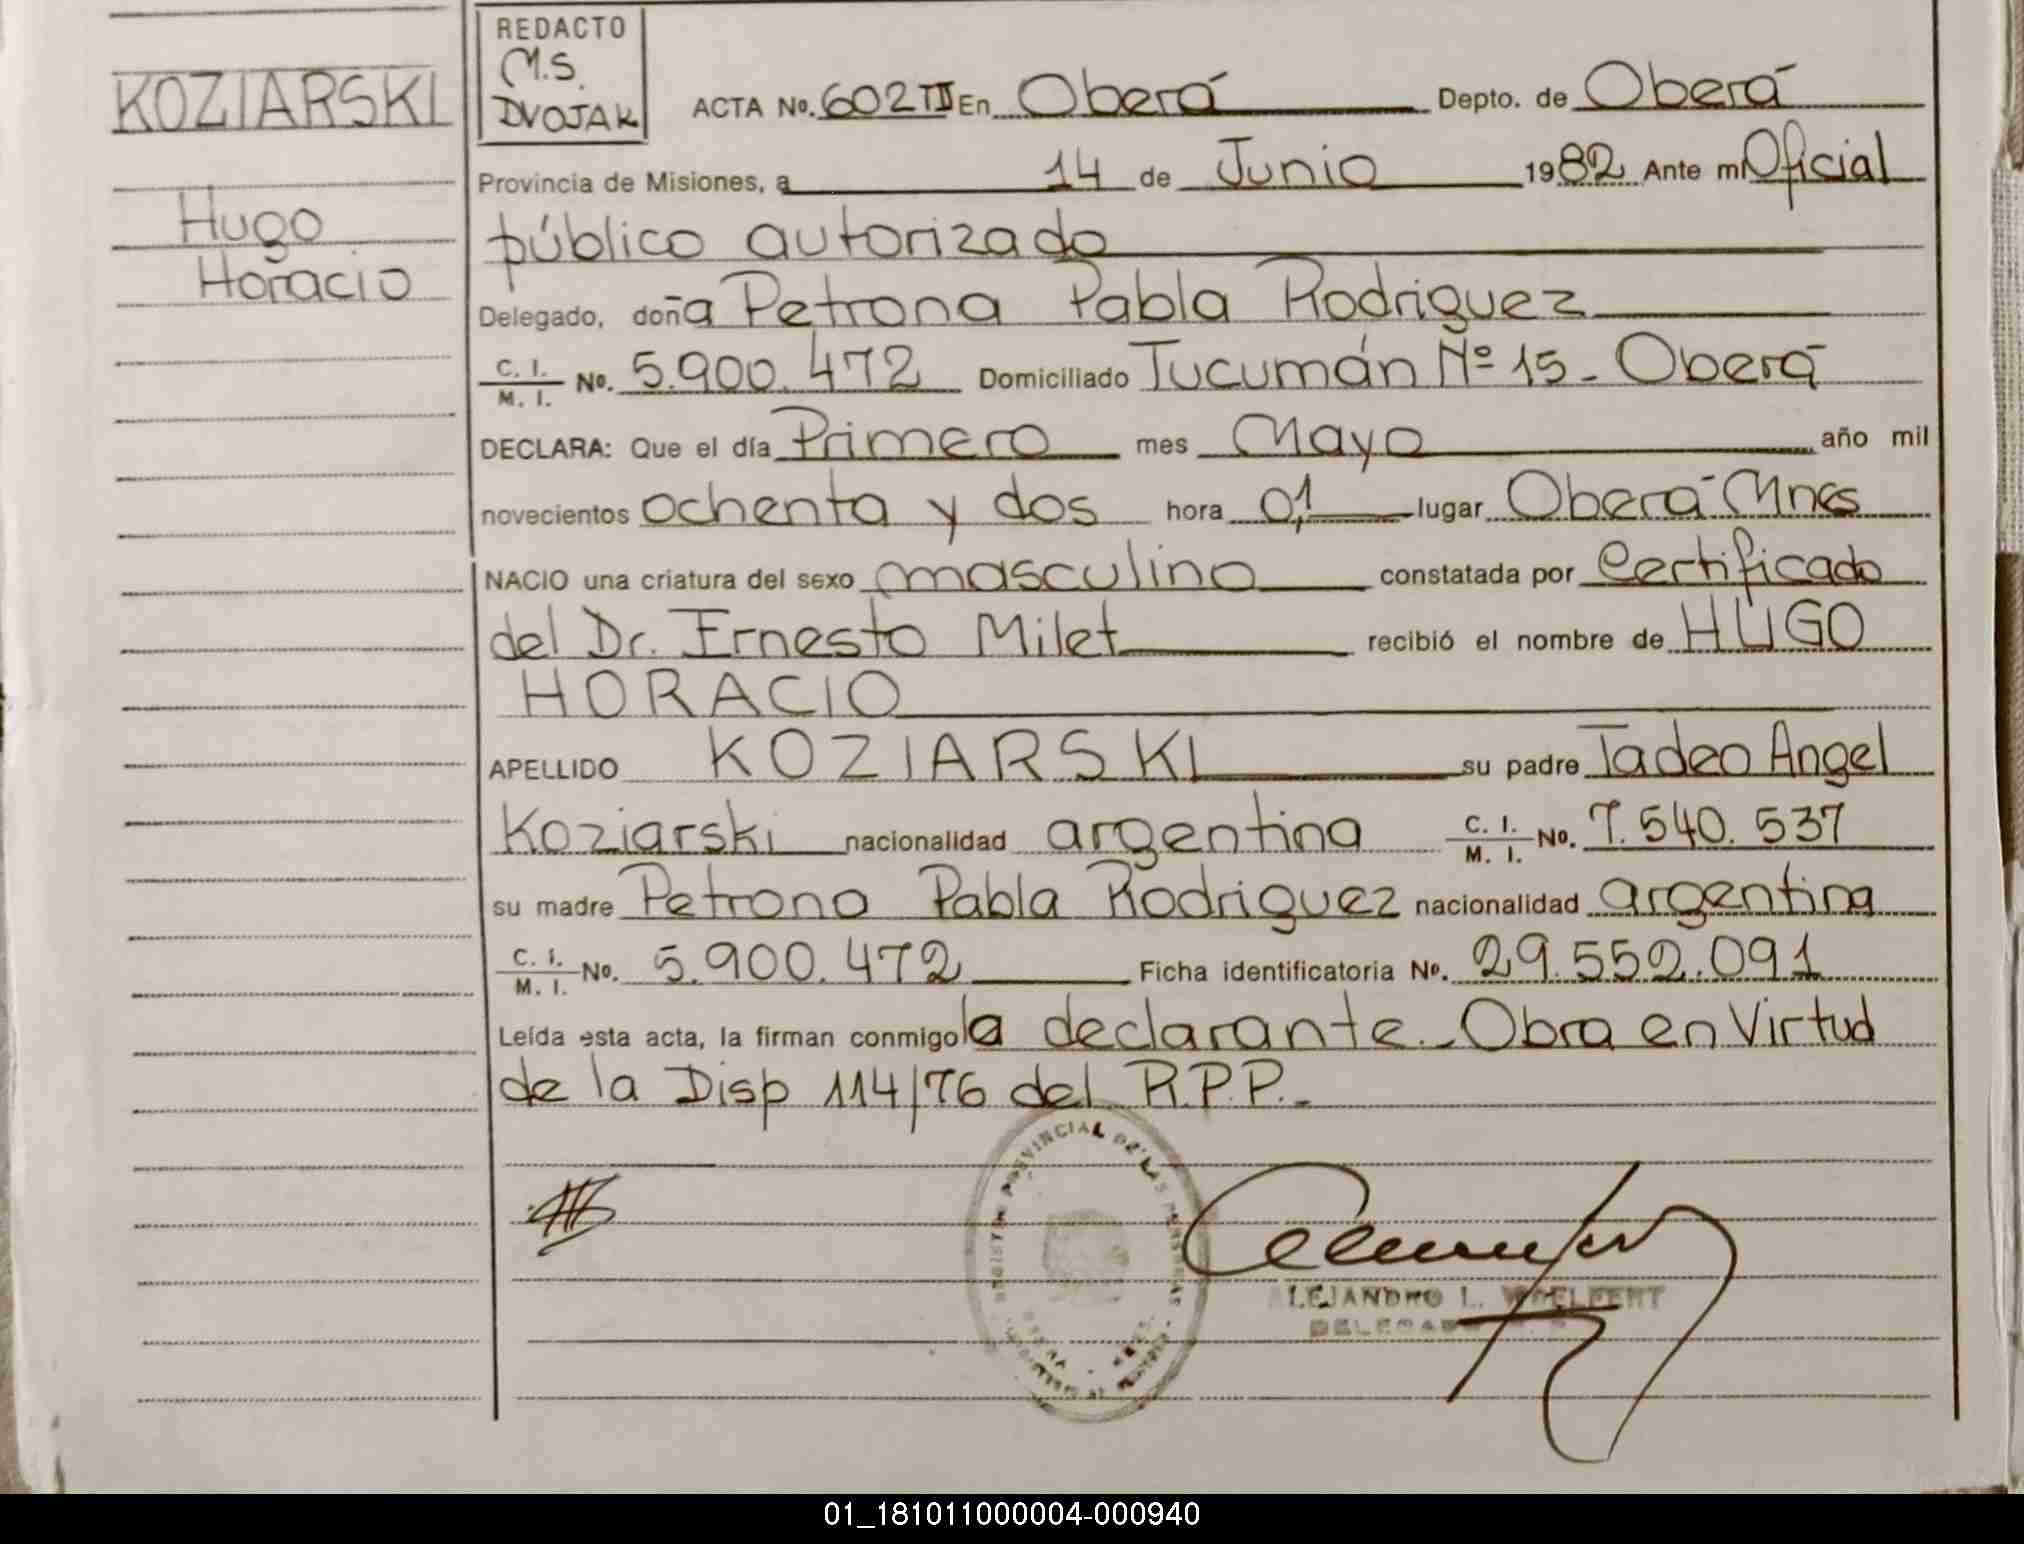 KOZIARSKI
Hugo
Horacio
REDACTO
M.S.
DVOJAK
ACTA No. 602 III En Oberá Depto. de Oberá
Provincia de Misiones, a 14 de Junio 1982 Ante mi Oficial
público autorizado
Delegado, doña Petrona Pabla Rodriguez
C. I. / M. I. No. 5.900.472 Domiciliado Tucumán Nº 15 - Oberá
DECLARA: Que el día Primero mes Mayo año mil
novecientos ochenta y dos hora 0,1 lugar Oberá Mnes
NACIO una criatura del sexo masculino constatada por Certificado
del Dr. Ernesto Milet recibió el nombre de HUGO
HORACIO
APELLIDO KOZIARSKI su padre Tadeo Angel
Koziarski nacionalidad argentina C. I. / M. I. No. 7.540.537
su madre Petrona Pabla Rodriguez nacionalidad argentina
C. I. / M. I. No. 5.900.472 Ficha identificatoria No. 29.552.091
Leída esta acta, la firman conmigo la declarante.- Obra en Virtud
de la Disp 114/76 del R.P.P.-
PROVINCIAL DE LAS PERSONAS
ALEJANDRO L. WOELFERT
DELEGADO
01_181011000004-000940